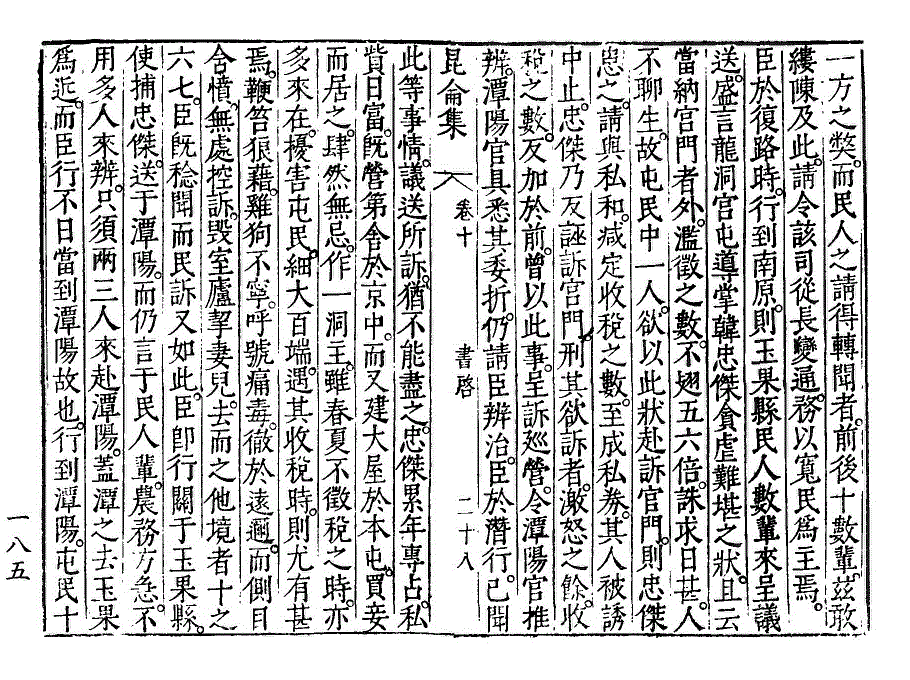 一方之弊。而民人之請得轉聞者。前後十數輩。玆敢
縷陳及此。請令該司從長變通。務以寬民爲主焉。
臣於復路時。行到南原。則玉果縣民人數輩來呈議
送。盛言龍洞宮屯導掌韓忠傑貪虐難堪之狀。且云
當納官門者外。濫徵之數。不翅五六倍。誅求日甚。人
不聊生。故屯民中一人。欲以此狀赴訴官門。則忠傑
患之。請與私和。减定收稅之數。至成私券。其人被誘
中止。忠傑乃反誣訴官門。刑其欲訴者。激怒之餘。收
稅之數。反加於前。曾以此事。呈訴廵營。令潭陽官推
辨。潭陽官具悉其委折。仍請臣辨治。臣於潛行。已聞
昆侖集 卷十 書啓 二十八
此等事情。議送所訴。猶不能盡之。忠傑累年專占。私
貲日富。旣營第舍於京中。而又建大屋於本屯。買妾
而居之。肆然無忌。作一洞主。雖春夏不徵稅之時。亦
多來在。擾害屯民。細大百端。遇其收稅時。則尤有甚
焉。鞭笞狼藉。雞狗不寧。呼號痛毒。徹於遠邇。而側目
含憤。無處控訴。毁室廬挈妻兒。去而之他境者十之
六七。臣旣稔聞而民訴又如此。臣卽行關于玉果縣。
使捕忠傑。送于潭陽。而仍言于民人輩。農務方急。不
用多人來辨。只須兩三人來赴潭陽。蓋潭之去玉果
爲近。而臣行不日當到潭陽故也。行到潭陽。屯民十
一八五